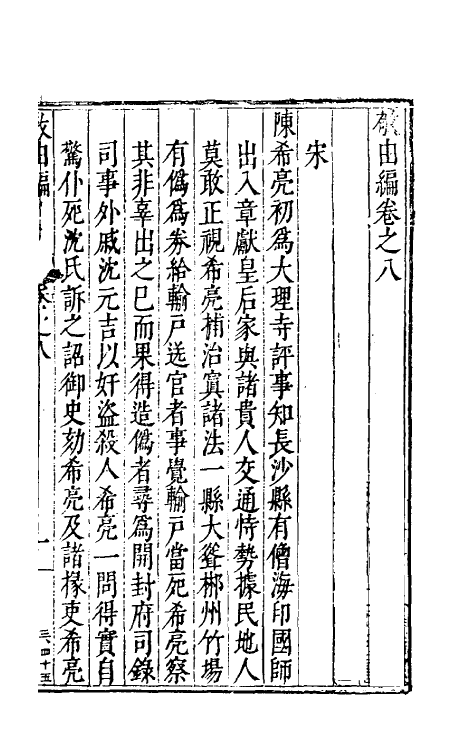 敬由編卷之八
宋
陳希亮初爲大理寺評事知長沙縣有僧海印國師
出入章獻皇后家與諸貴人交通恃勢據民地人
莫敢正視希亮捕治寘諸法一縣大聳郴州竹場
有僞爲券給輸戶送官者事覺輸戶當死希亮察
其非辜出之已而果得造僞者尋爲開封府司錄
司事外戚沈元吉以奸盜殺人希亮一問得實自
驚仆死沈氏訴之詔御史劾希亮及諸掾吏希亮
由編
之八
一
三四十五